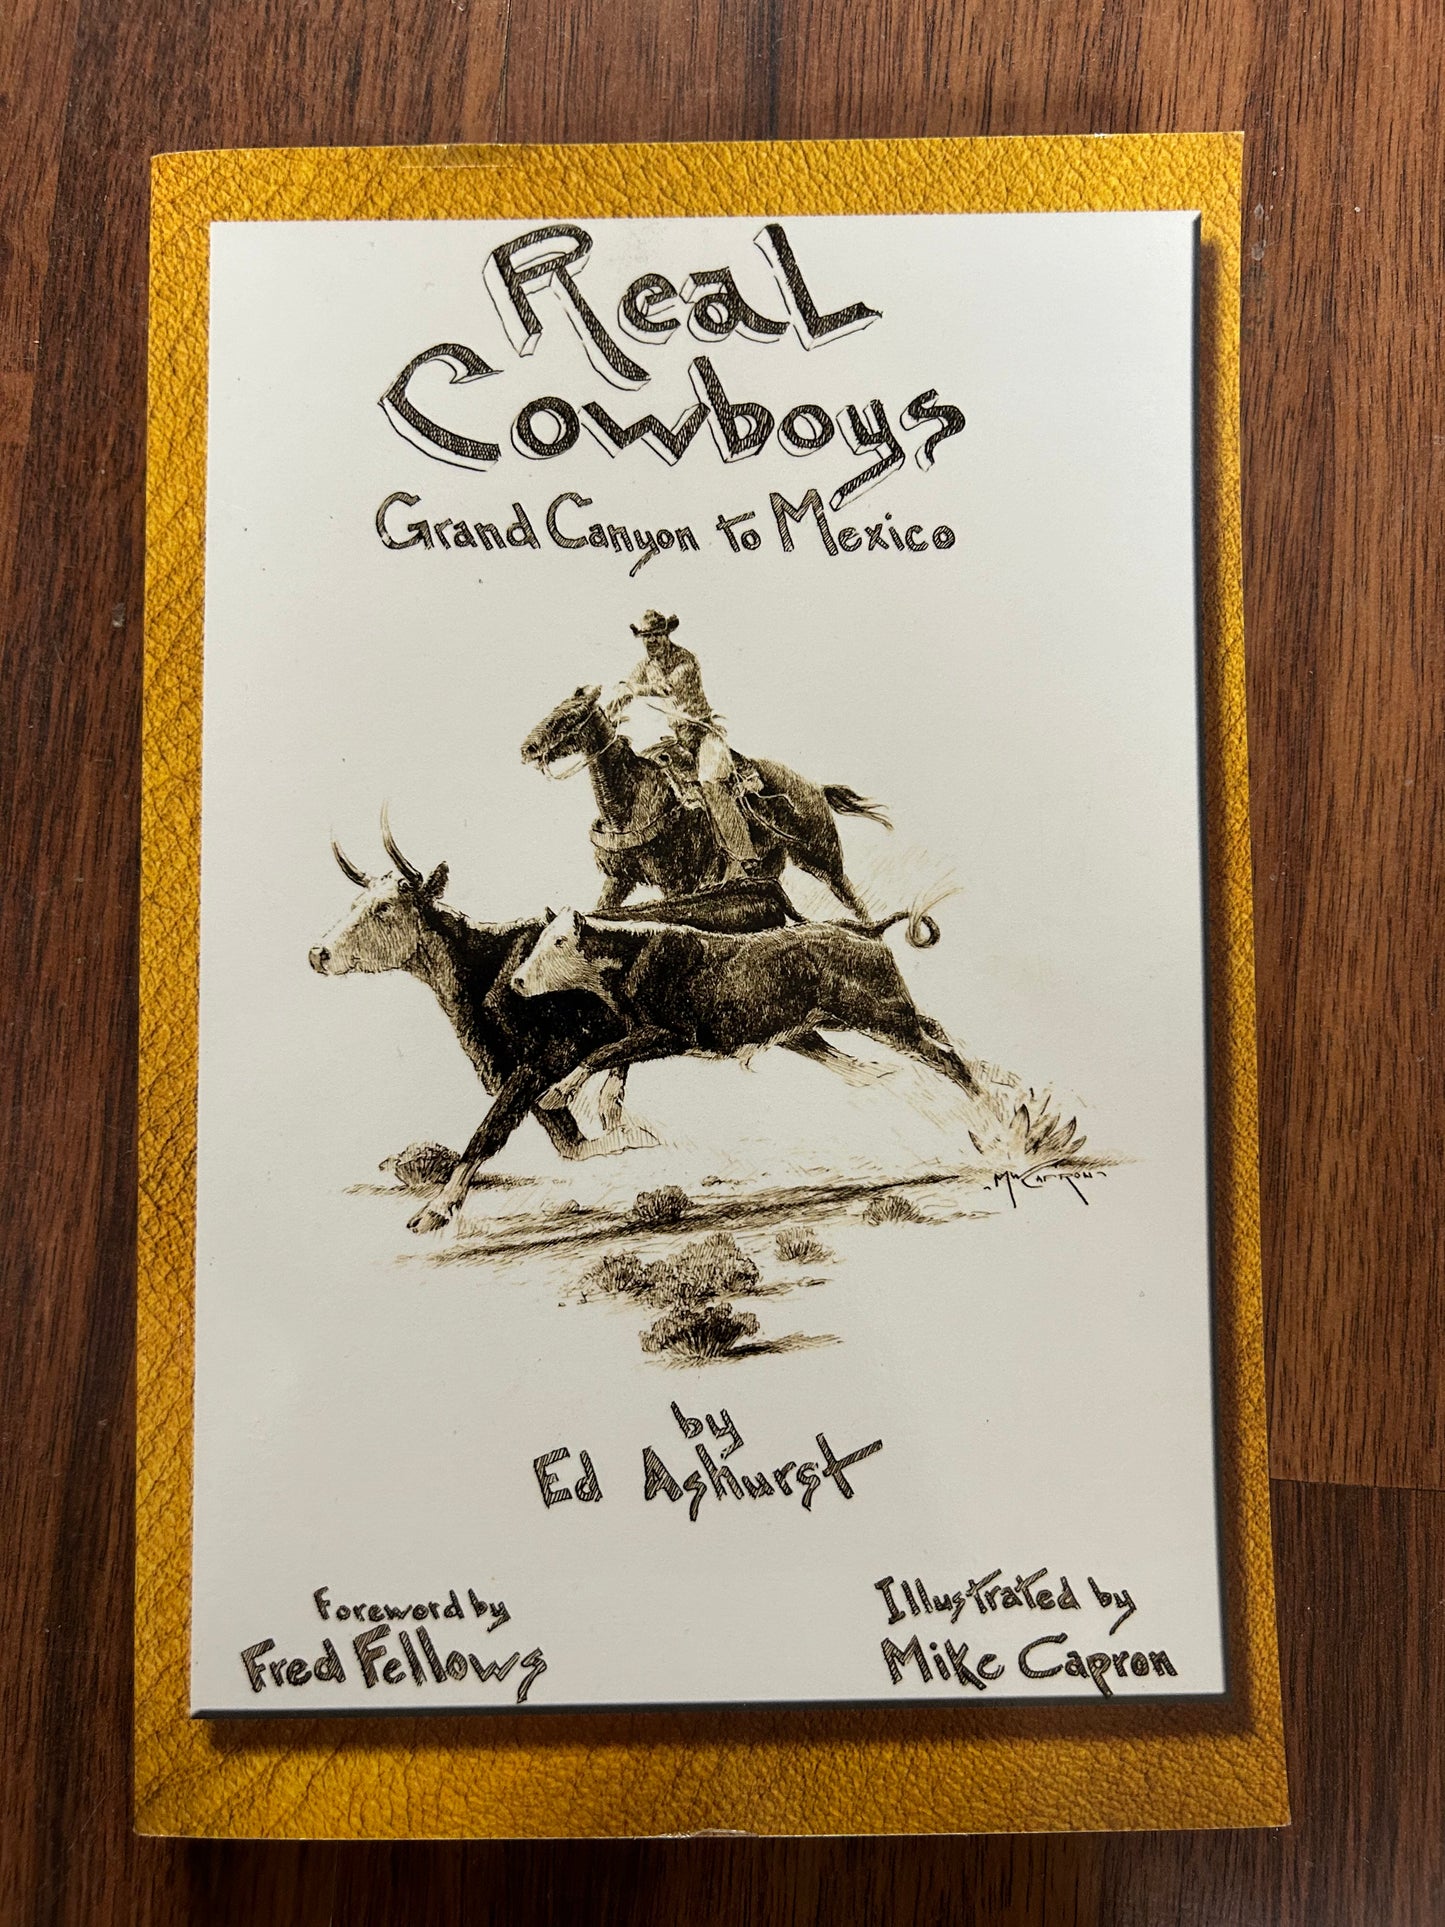 Real
Cowboys
Grand Canyon to Mexico
Mw Capron
by
Ed Ashurst
Foreword by
Fred Fellows
Illustrated by
Mike Capron